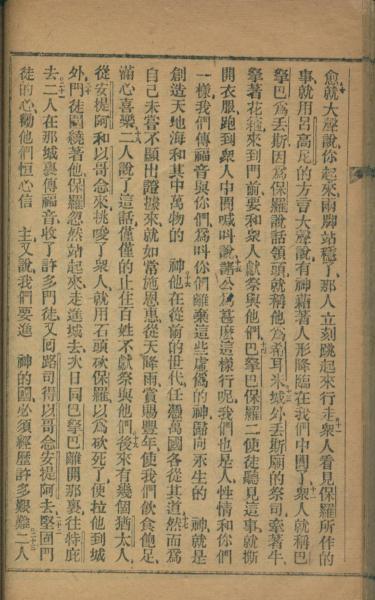 愈就大聲說、你起來、兩脚站穩了、那人立刻跳起來行走、衆人看見保羅所作的
事、就用呂高尼的方言大聲說、有神藉著人形降臨在我們中間了、衆人就稱巴
拏巴爲丟斯、因爲保羅說話領頭、就稱他爲希耳米、城外丟斯廟的祭司、牽著牛、
拏著花穗、來到門前、要和衆人獻祭與他們、巴拏巴保羅二使徒聽見這事、就撕
開衣服、跑到衆人中間、喊叫說、諸公爲甚麽這樣行呢、我們也是人、性情和你們
一樣、我們傳福音與你們、爲叫你們離棄這些虛僞的神、歸向永生的 神、就是
創造天地海和其中萬物的 神、他在從前的世代、任憑萬國各從其道、然而爲
自己未嘗不顯出證據來、就如常施恩惠、從天降雨、賞賜豐年、使我們飲食飽足、
滿心喜樂、二人說了這話、僅僅的止住百姓不獻祭與他們、後來有幾個猶太人、
從安提阿和以哥念來、挑唆了衆人、就用石頭砍保羅、以爲砍死了、便拉他到城
外、門徒圍繞著他、保羅忽然站起來、走進城去、次日同巴拏巴離開那裏、往特庇
去、二人在那城裏傳福音、收了許多門徒、又回路司得以哥念安提阿去、堅固門
徒的心、勸他們恒心信 主、又說、我們要進 神的國、必須經歷許多艱難、二人